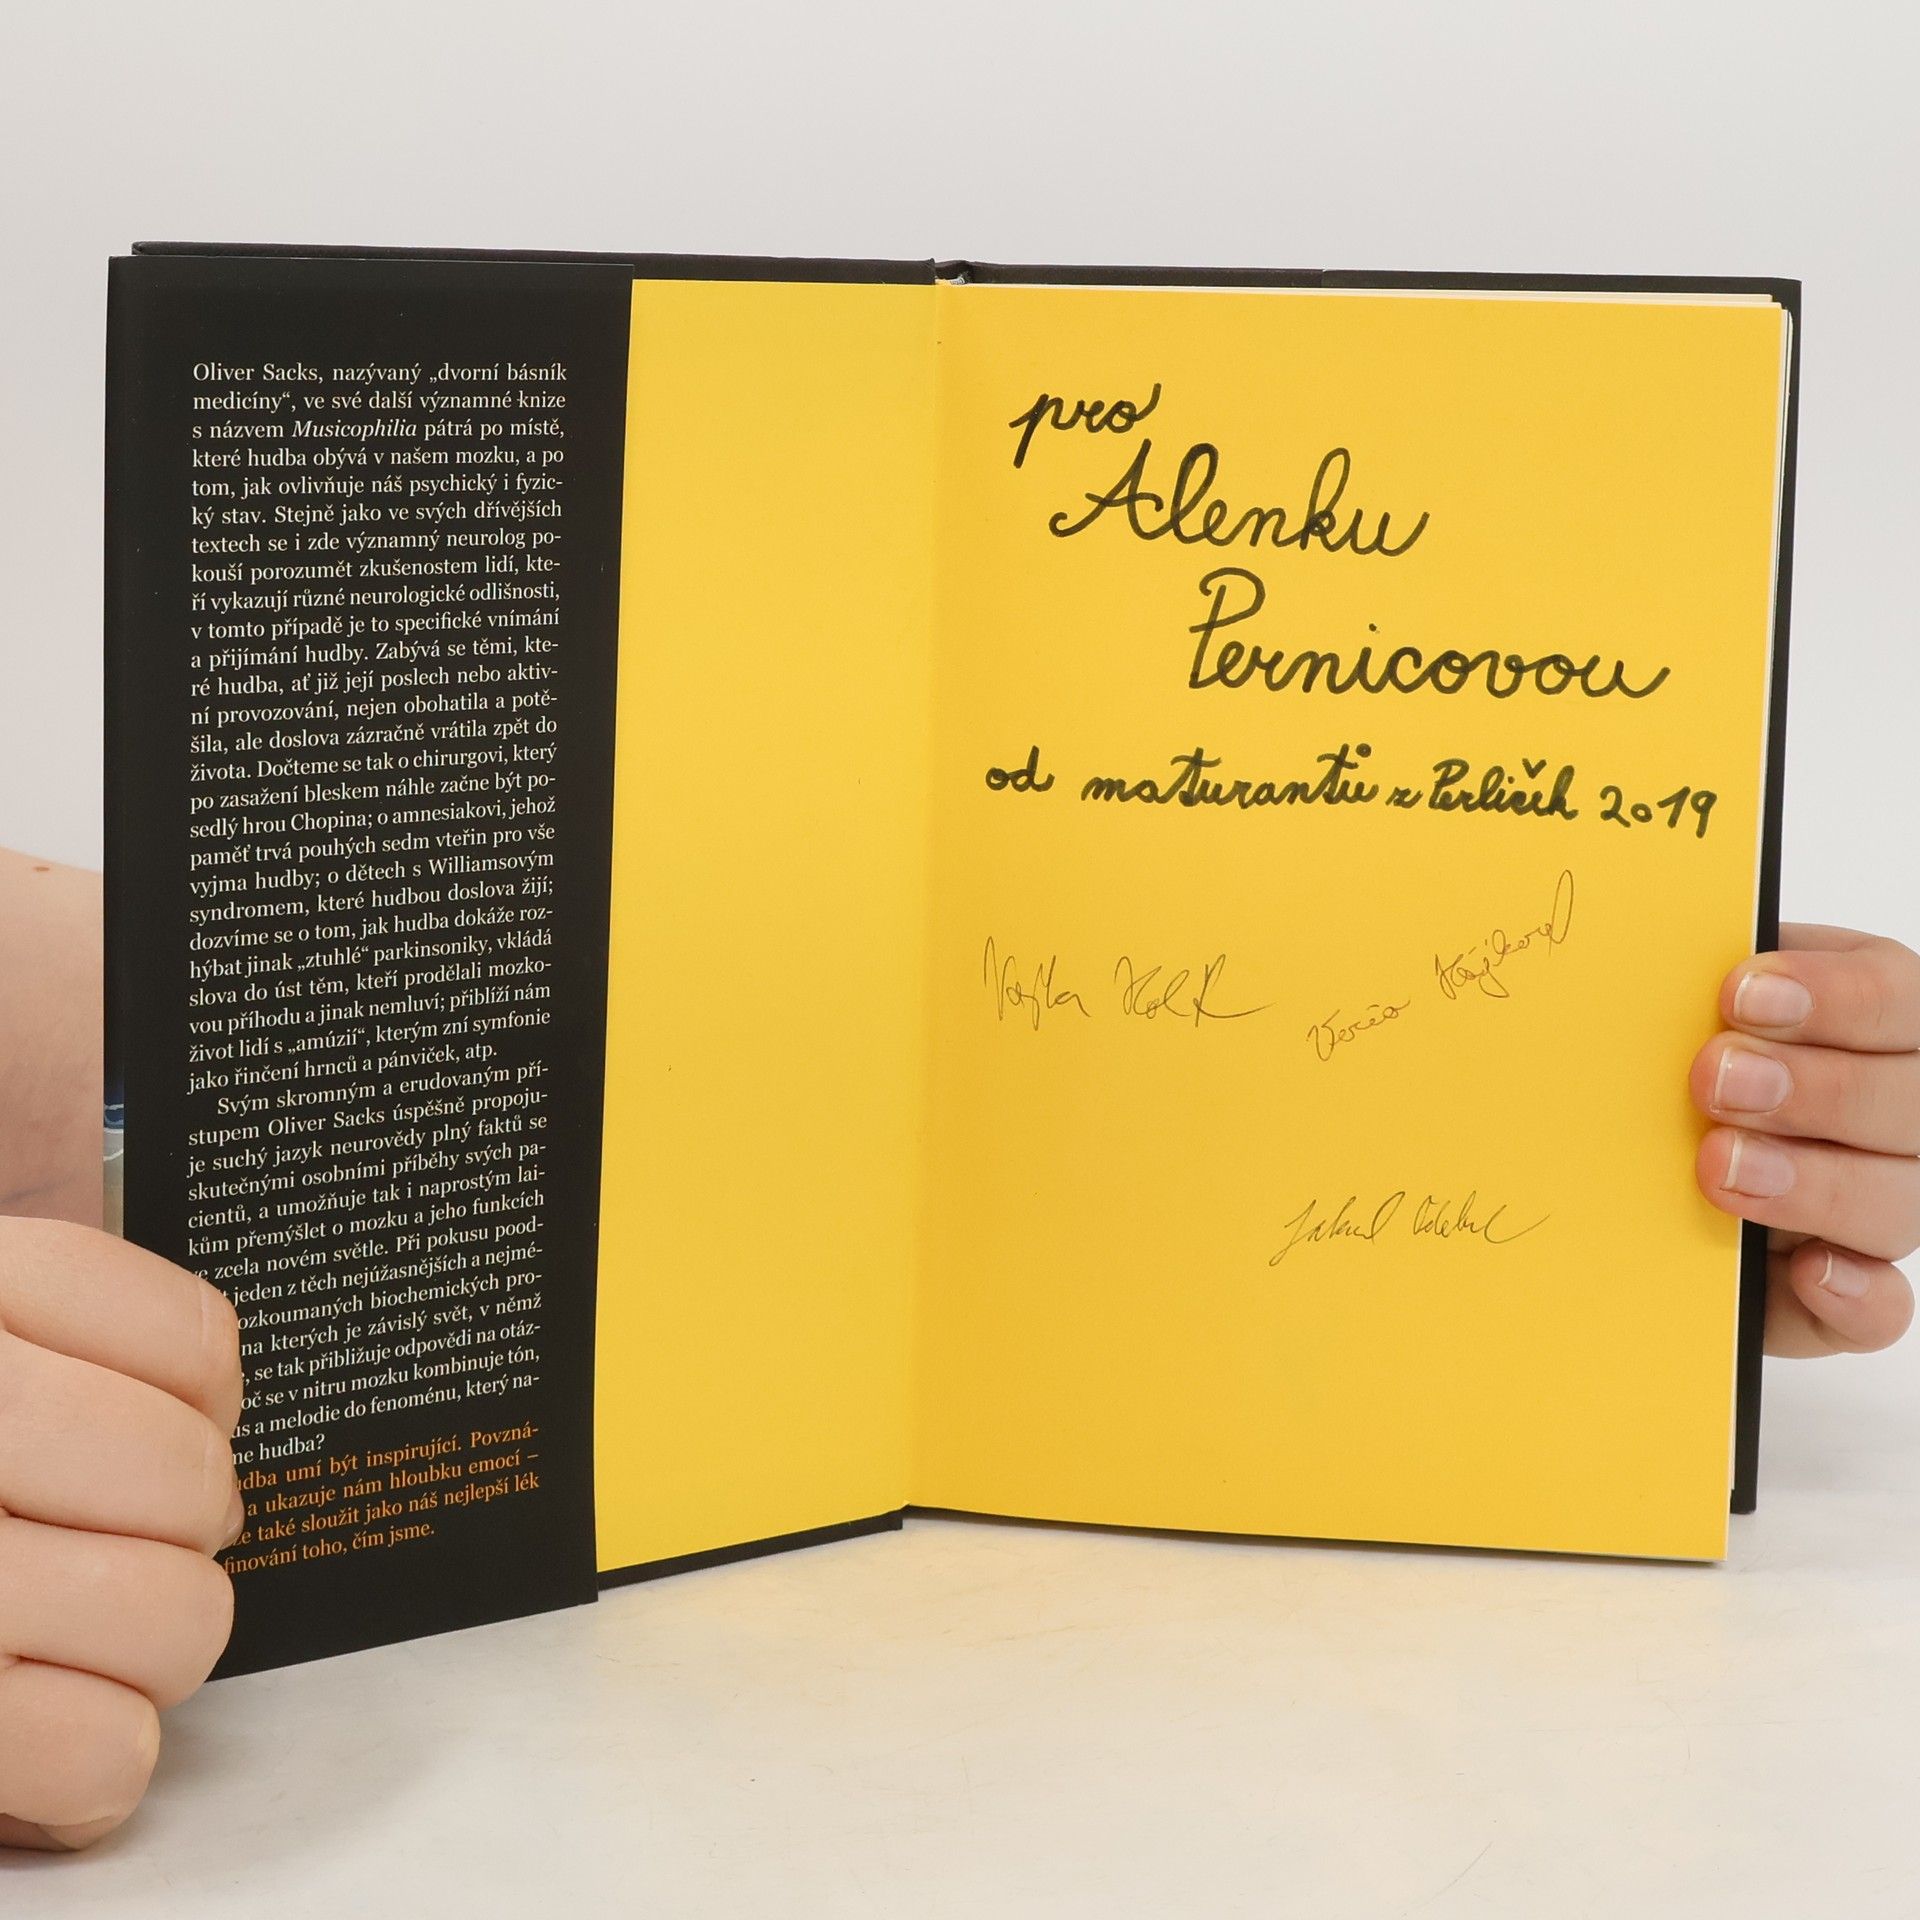 Oliver Sacks, nazývaný „dvorní básník
medicíny“, ve své další významné knize
s názvem Musicophilia pátrá po místě,
které hudba obývá v našem mozku, a po
tom, jak ovlivňuje náš psychický i fyzic-
ký stav. Stejně jako ve svých dřívějších
textech se i zde významný neurolog po-
kouší porozumět zkušenostem lidí, kte-
ří vykazují různé neurologické odlišnosti,
v tomto případě je to specifické vnímání
a přijímání hudby. Zabývá se těmi, kte-
ré hudba, ať již její poslech nebo aktiv-
ní provozování, nejen obohatila a potě-
šila, ale doslova zázračně vrátila zpět do
života. Dočteme se tak o chirurgovi, který
po zasažení bleskem náhle začne být po-
sedlý hrou Chopina; o amnesiakovi, jehož
paměť trvá pouhých sedm vteřin pro vše
vyjma hudby; o dětech s Williamsovým
syndromem, které hudbou doslova žijí;
dozvíme se o tom, jak hudba dokáže roz-
hýbat jinak „ztuhlé“ parkinsoniky, vkládá
slova do úst těm, kteří prodělali mozko-
vou příhodu a jinak nemluví; přiblíží nám
život lidí s „amúzií“, kterým zní symfonie
jako řinčení hrnců a pánviček, atp.
Svým skromným a erudovaným pří-
stupem Oliver Sacks úspěšně propoju-
je suchý jazyk neurovědy plný faktů se
skutečnými osobními příběhy svých pa-
cientů, a umožňuje tak i naprostým lai-
kům přemýšlet o mozku a jeho funkcích
zcela novém světle. Při pokusu pood-
jeden z těch nejúžasnějších a nejmé-
ozkoumaných biochemických pro-
na kterých je závislý svět, v němž
, se tak přibližuje odpovědi na otáz-
oč se v nitru mozku kombinuje tón,
us a melodie do fenoménu, který na-
me hudba?
udba umí být inspirující. Povzná-
a ukazuje nám hloubku emocí –
že také sloužit jako náš nejlepší lék
finování toho, čím jsme.
pro
Alenku
Pernicovou
od maturantů z Perliček 2019